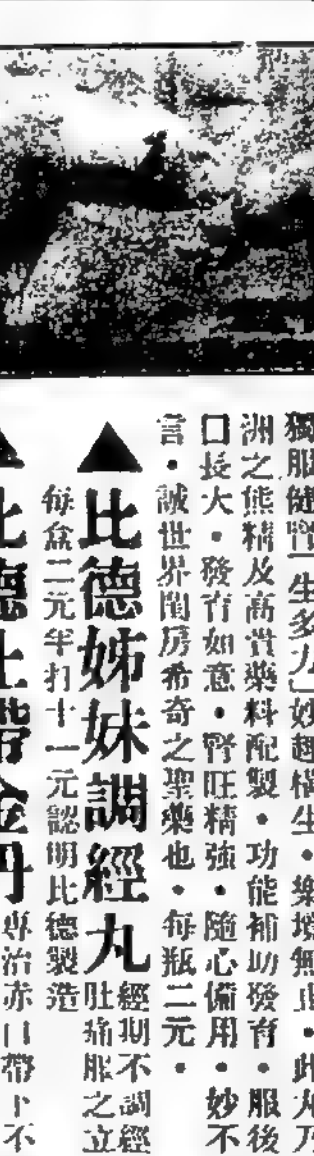 獨服健腎「生多力」妙趣橫生・樂境無止・此丸乃
洲之熊精及高貴藥料配製・功能補助發育・服後
口長大・發育如意・腎旺精強・隨心備用・妙不
言・誠世界閨房希奇之聖藥也・每瓶二元・
▲比德姊妹調經丸
經期不調經
肚痛服之立
每盒二元半打十一元認明比德製造
▲比德止帶金丹
專治赤白帶下不